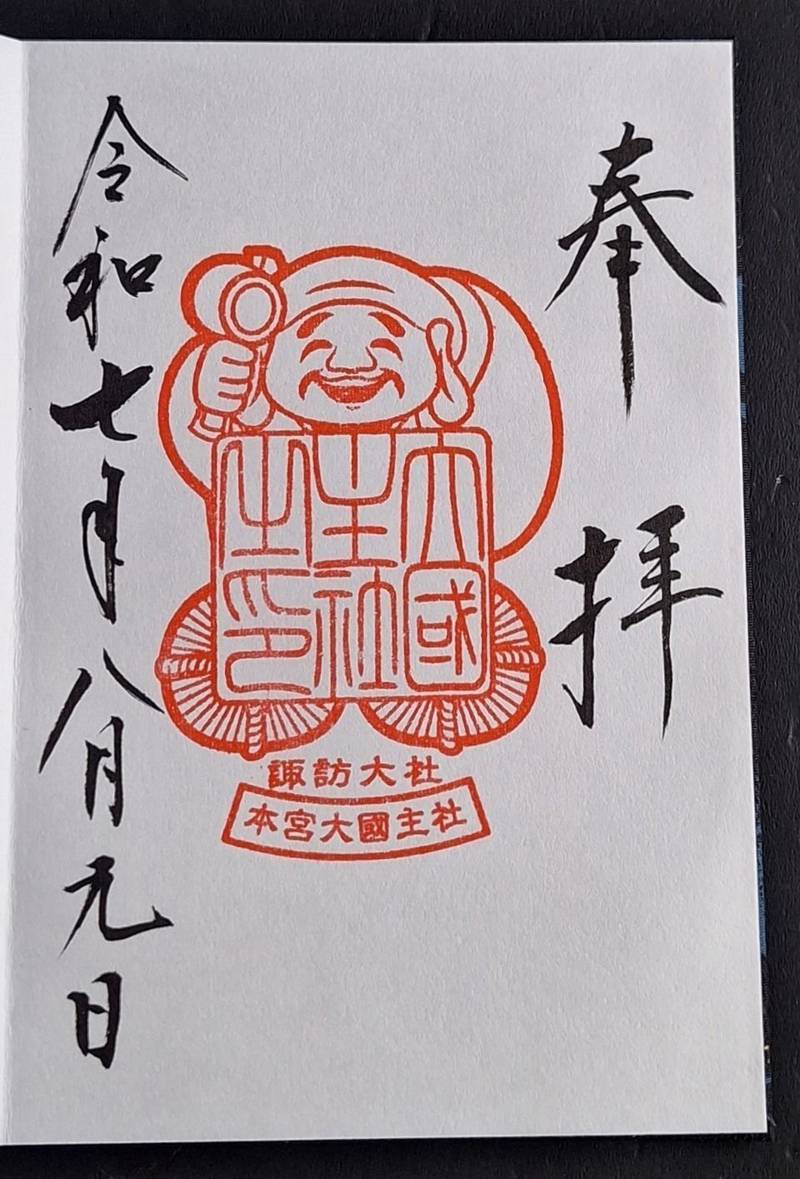 奉拝
大國
主社
之印
諏訪大社
本宮大國主社
令和七年八月元日